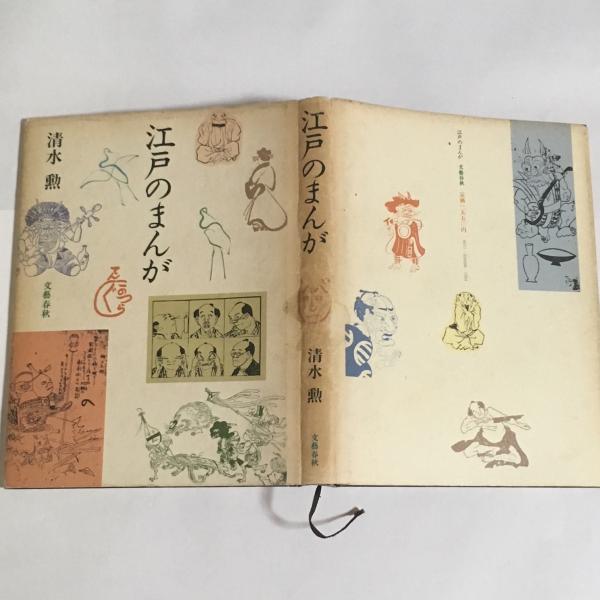 江戸のまんが
清水 勲
文藝春秋
の
江戸のまんが
清水 勲
文藝春秋
江戸のまんが 文藝春秋